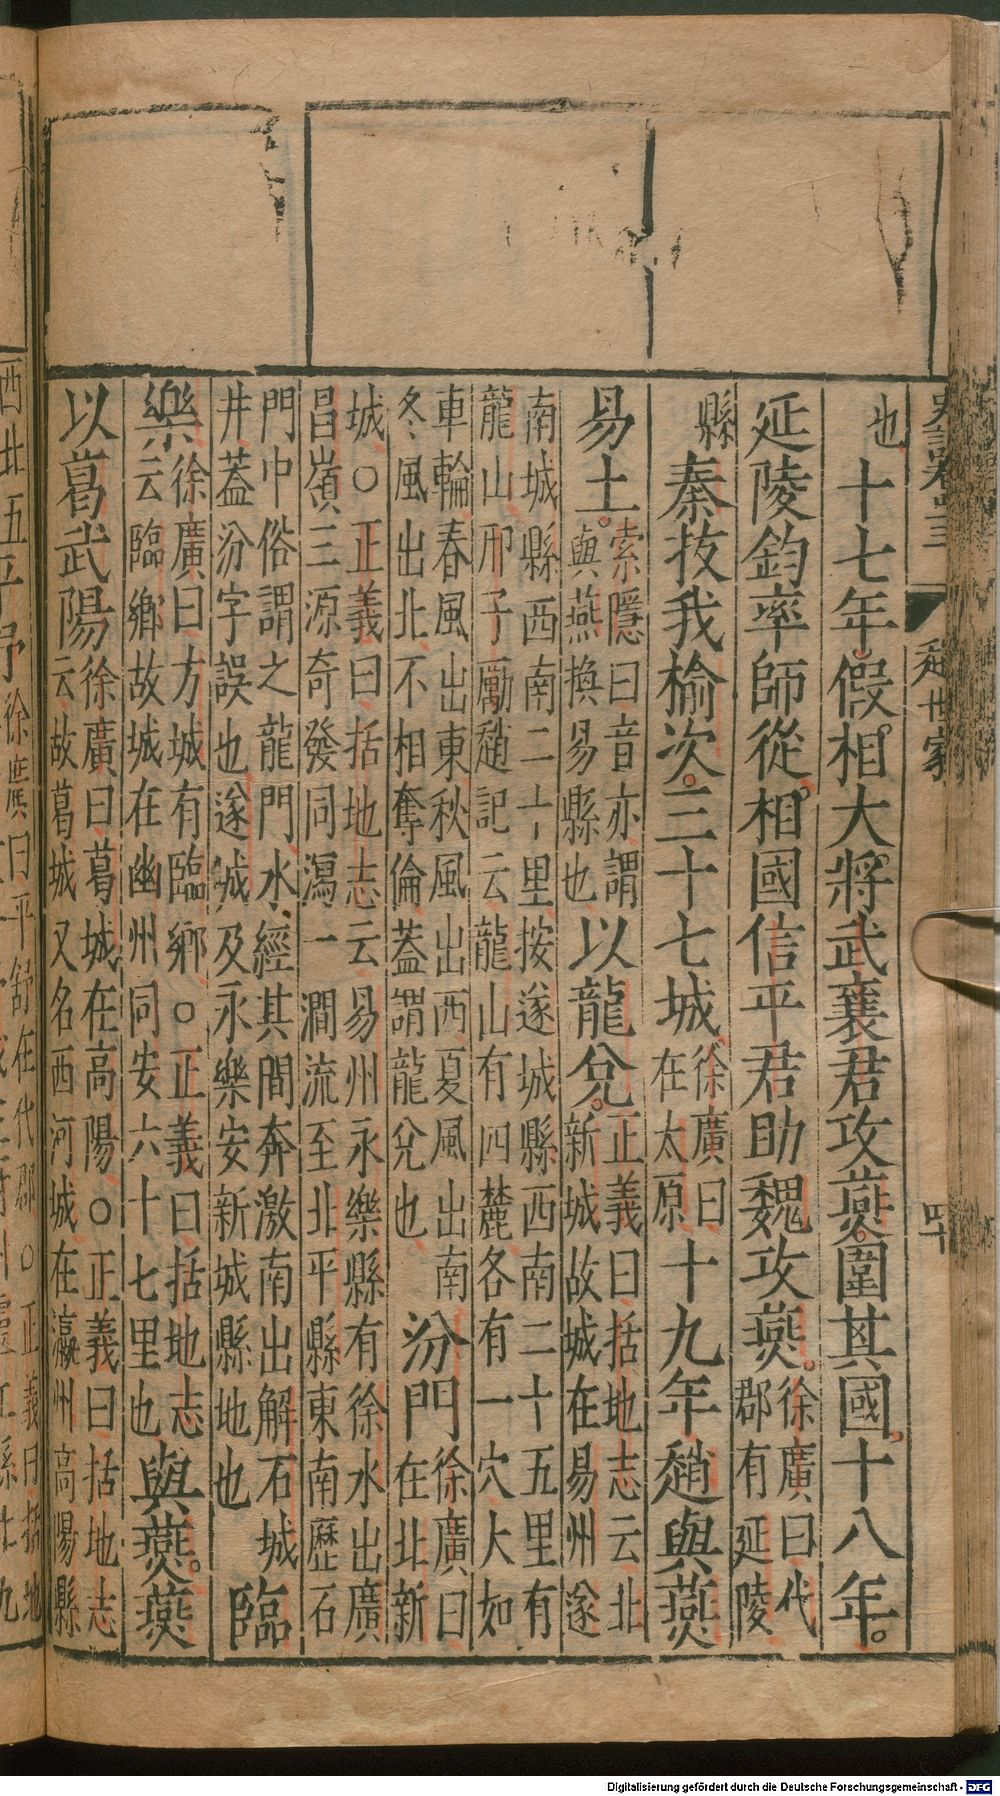 史記卷四三 趙世家 四十
也十七年。假相大將武襄君攻燕。圍其國。十八年。
延陵鈞率師從相國信平君助魏攻燕。徐廣曰代
郡有延陵
縣秦拔我榆次。三十七城徐廣曰
在太原十九年趙與燕
易土。索隱曰音亦謂
與燕換易縣也以龍兌。正義曰括地志云北
新城故城在易州遂
南城縣西南二十里按遂城縣西南二十五里有
龍山邢子勵趙記云龍山有四麓各有一穴大如
車輪春風出東秋風出西夏風出南
冬風出北不相奪倫蓋謂龍兌也汾門徐廣曰
在北新
城○正義曰括地志云易州永樂縣有徐水出廣
昌嶺三源奇發同瀉一澗流至北平縣東南歷石
門中俗謂之龍門水經其間奔激南出解石城
井蓋汾字誤也遂城及永樂安新城縣地也臨
樂徐廣曰方城有臨鄉○正義曰括地志
云臨鄉故城在幽州同安六十七里也與燕。燕
以葛武陽徐廣曰葛城在高陽○正義曰括地志
云故葛城又名西河城在瀛州高陽縣
西北五平舒徐廣曰平舒在代郡○正義曰括地
Digitalisierung gefördert durch die Deutsche Forschungsgemeinschaft - DFG